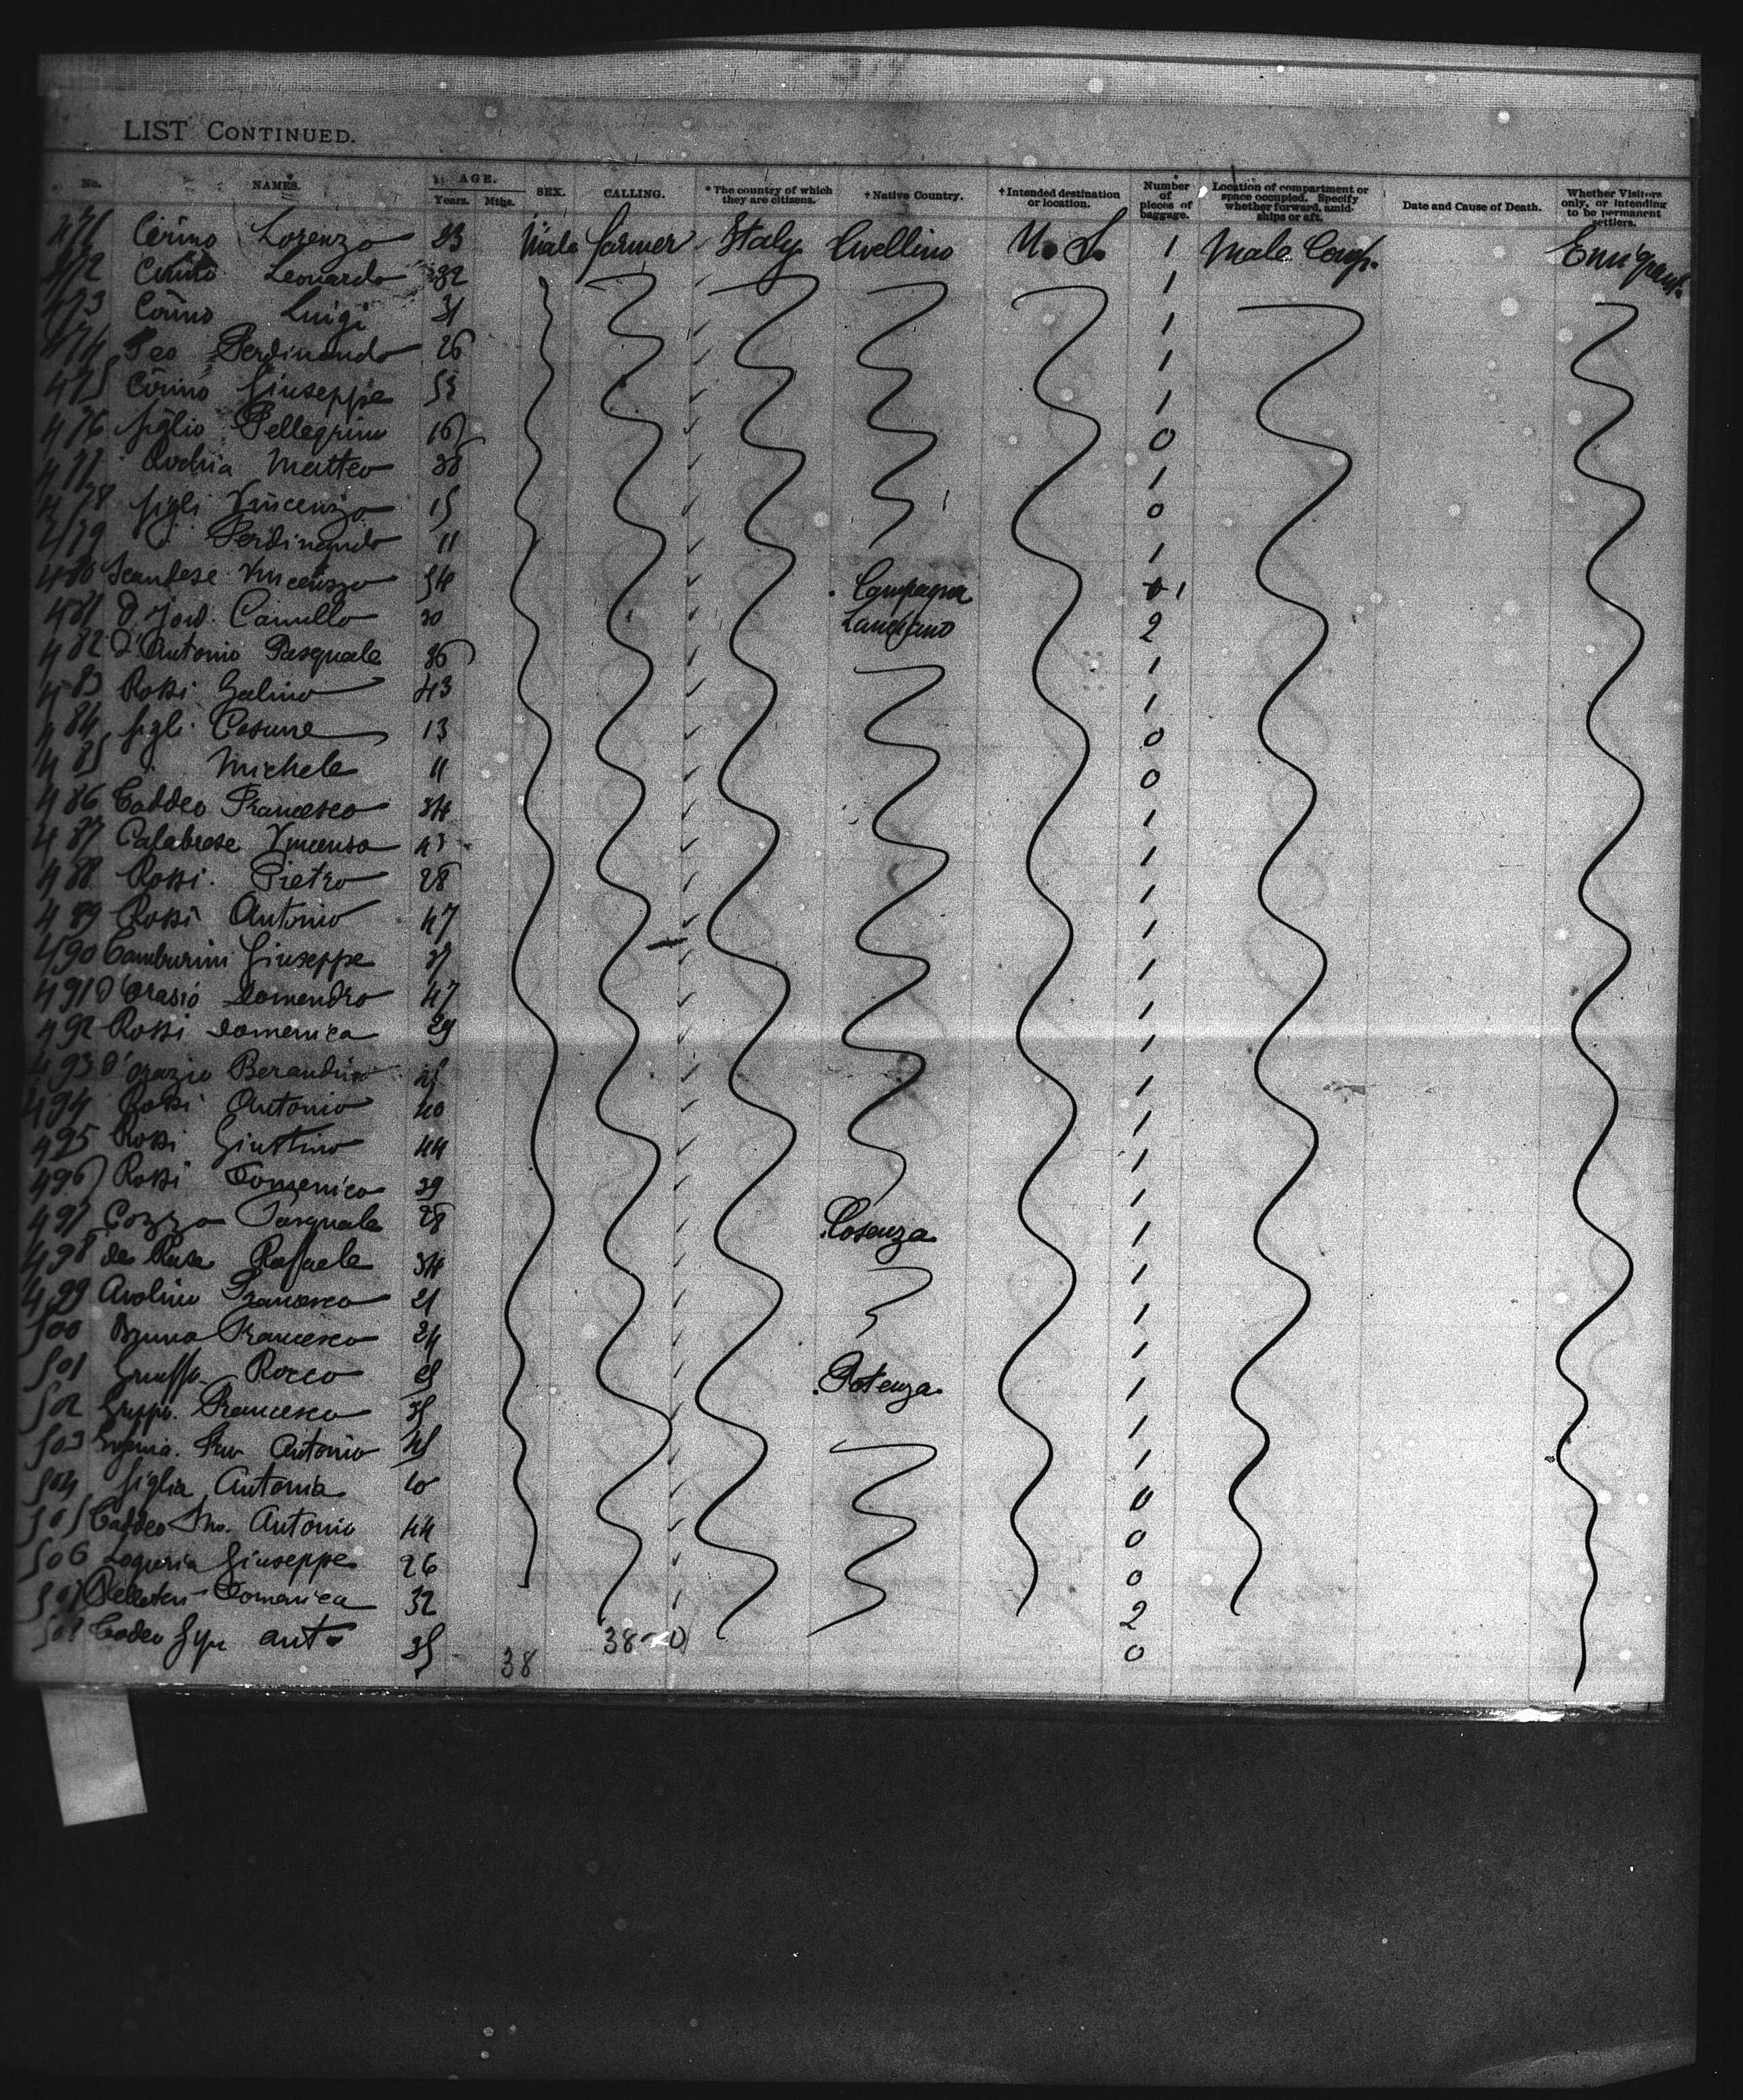 LIST CONTINUED.
No. NAMES. AGE. Years. Mths. SEX. CALLING. * The country of which they are citizens. † Native Country. † Intended destination or location. Number of pieces of baggage. Location of compartment or space occupied. Specify whether forward, amidships or aft. Date and Cause of Death. Whether Visitors only, or intending to be permanent settlers.
471 Cirino Lorenzo 33 Male farmer Italy Avellino U. S. 1 Male Comp. Emigrant.
472 Cirino Leonardo 32 1
473 Cirino Luigi 31 1
474 Feo Ferdinando 26 1
475 Cirino Giuseppe 55 1
476 figlio Pellegrino 16 0
477 Matteo 38 1
478 figli Vincenzo 15 0
479 Ferdinando 11 1
480 Vincenzo 54 Campagna 1
481 Camillo 30 Lanciano 2
482 D'Antonio Pasquale 36 1
483 Rossi 43 1
484 figli Cesare 13 0
485 Michele 11 0
486 Taddeo Francesco 34 1
487 Calabrese Vincenso 43 1
488 Rossi Pietro 28 1
489 Rossi Antonio 47 1
490 Tamburini Giuseppe 37 1
491 D'Orasio 47 1
492 Rossi Domenica 29 1
493 D'Orazio 1
494 Rossi Antonio 40 1
495 Rossi Giustino 44 1
496 Rossi Domenico 39 1
497 Cozza Pasquale 28 Cosenza 1
498 de Rafaele 34 1
499 Avolino Francesco 21 1
500 Bruno Francesco 24 1
501 Rocco Potenza 1
502 Francesco 35 1
503 Antonio 45 1
504 figlia Antonia 10 0
505 Taddeo Antonio 44 0
506 Giuseppe 26 0
507 Domenica 32 2
508 Ant. 35 0
38 38